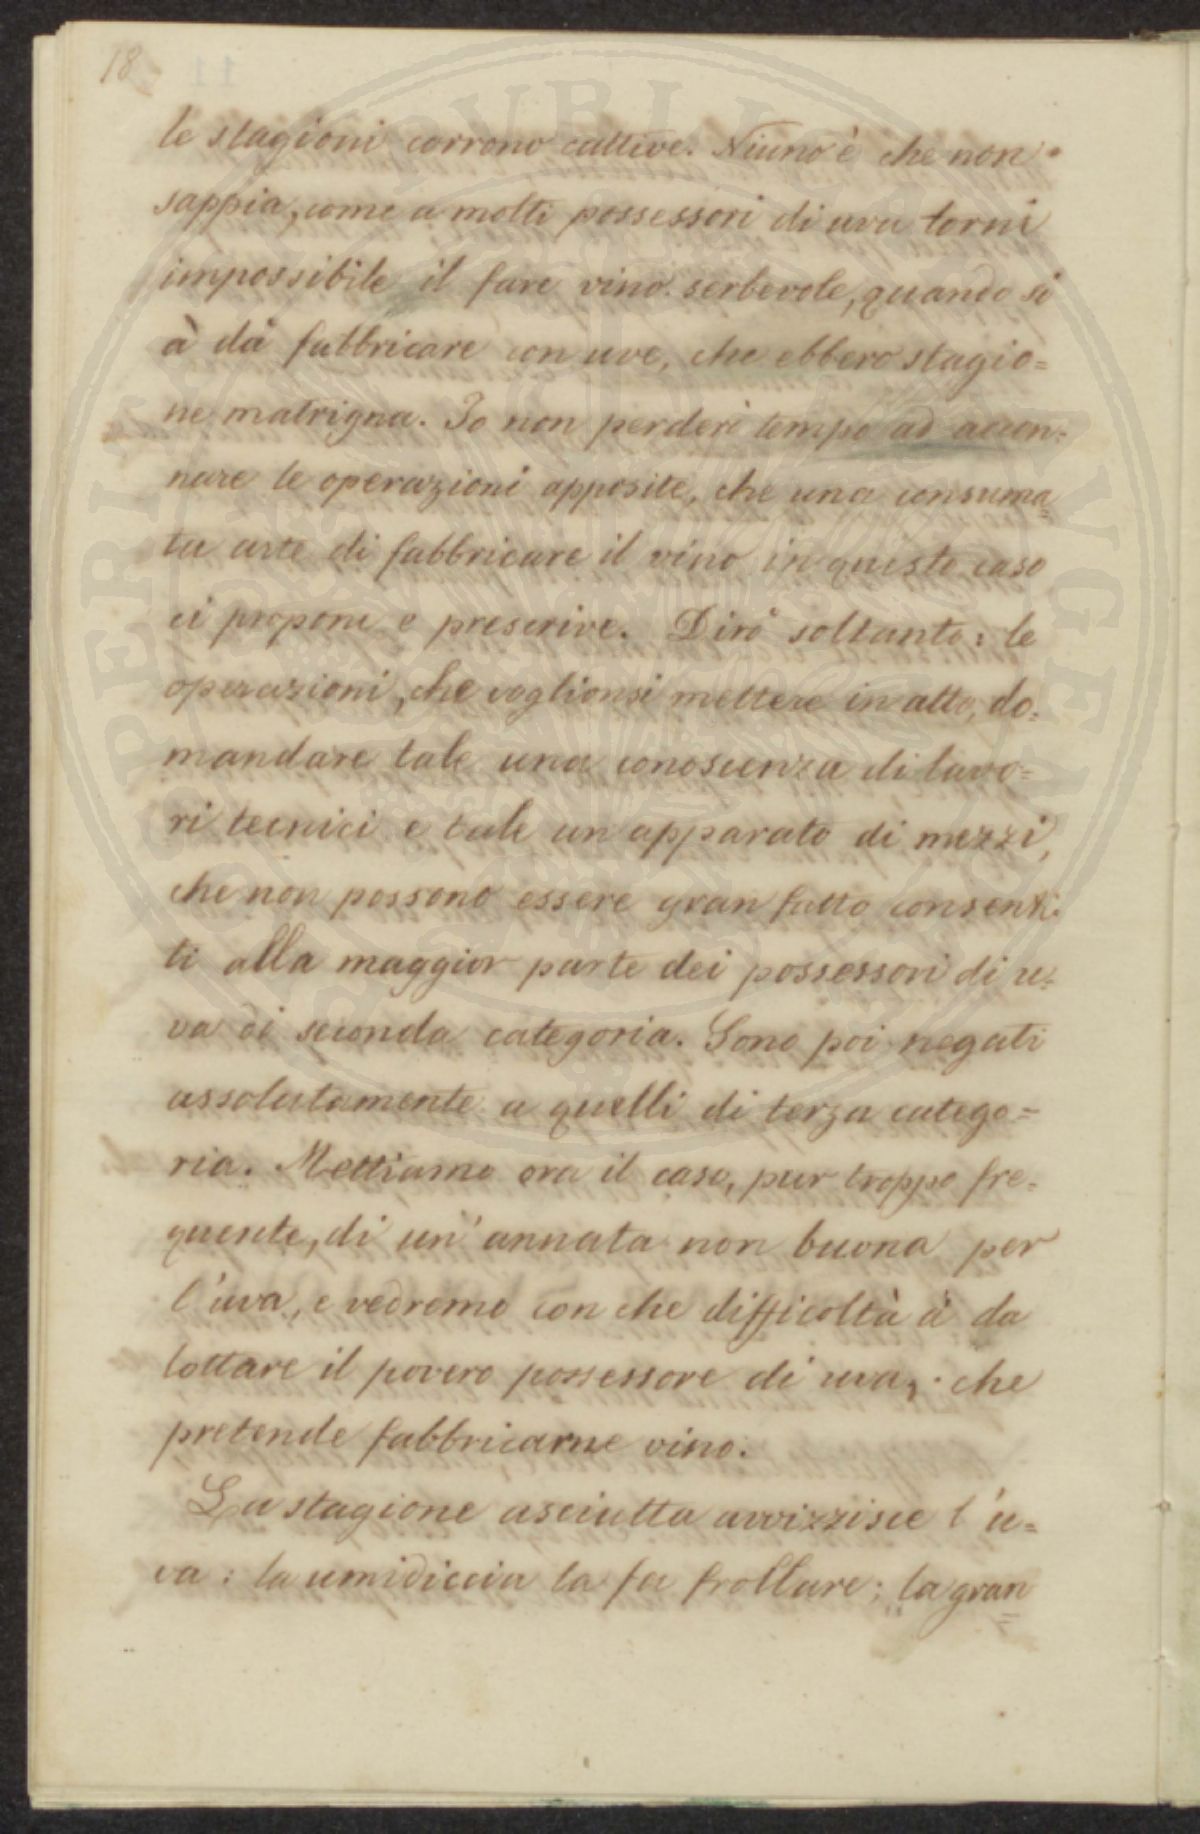 18
le stagioni corrono cattive. Niuno è che non
sappia, come a molti possessori di uva torni
impossibile il fare vino serbevole, quando si
à da fabbricare con uve, che ebbero stagio=
ne matrigna. Io non perderò tempo ad accen=
nare le operazioni apposite, che una consuma=
ta arte di fabbricare il vino in questo caso
ci propone e prescrive. Dirò soltanto: le
operazioni, che voglionsi mettere in atto, do=
mandare tale una conoscenza di lavo=
ri tecnici e tale un apparato di mezzi,
che non possono essere gran fatto consenti=
ti alla maggior parte dei possessori di u=
va di seconda categoria. Sono poi negati
assolutamente a quelli di terza catego=
ria. Mettiamo ora il caso, pur troppo fre=
quente, di un'annata non buona per
l'uva, e vedremo con che difficoltà à da
lottare il povero possessore di uva, che
pretende fabbricarne vino.
La stagione asciutta avvizzisce l'u=
va: la umidiccia la fa frollare; la gran=